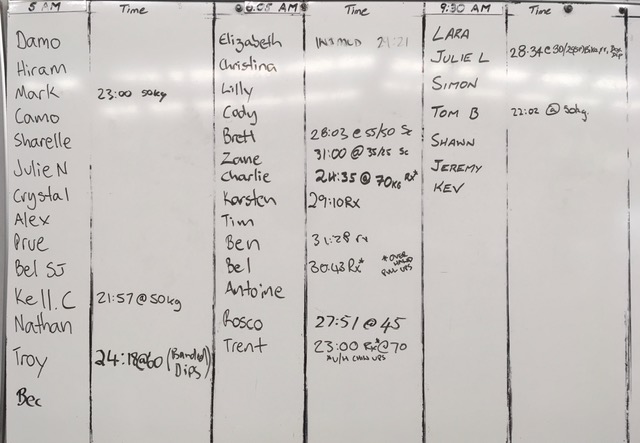 5 AM Time
Damo
Hiram
Mark 23:00 50kg
Camo
Sharelle
Julie N
Crystal
Alex
Prue
Bel SJ
Kell.C 21:57@50kg
Nathan
Troy 24:18@60 (Banded Dips)
Bec
6:05 AM Time
Elizabeth 29:21
Christina
Lilly
Cody
Brett 28:03 @ 55/50 Sc
Zane 31:00 @ 35/25 Sc
Charlie 24:35 @ 70KG Rx*
Karsten 29:10 Rx
Tim
Ben 31:28 rx
Bel 30:43 Rx* *OVER HAND PULL UPS
Antoine
Rosco 27:51 @ 45
Trent 23:00 Rx*@70
*U/H CHIN UPS
9:30 AM Time
LARA
JULIE L 28:34 @ 30/
SIMON
TOM B 22:02 @ 50kg.
SHAWN
JEREMY
KEV